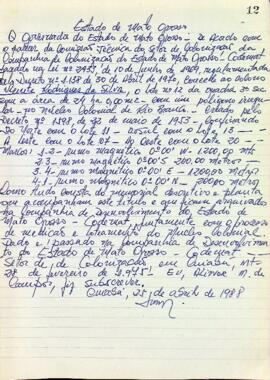 12
Estado de Mato Grosso
O Governador do Estado de Mato Grosso - De Acordo com
o parecer da Comissão Técnica do Setor de Colonização da
Companhia de Colonização do Estado de Mato Grosso - Codemat
pelo Decreto nº de 30 de Abril de 1970, concede ao colono
Vicente Rodrigues da Silva, o lote nº 12 da quadra 30
com a area de 24 ha,
no núcleo colonial de Rio Branco - Criado pelo
Decreto nº de de maio de 1953 - Confinando
Do Norte com o lote 11 - ao Sul com o lote, 13 -
A com o lote 07 - Ao Oeste com o lote 20 -
Marcos: 1.2 - rumo magnético 0º00 N - 1200,00 mts
2.3 - rumo magnético 0º00'S 200,00 metros -
3.4 - rumo magnético 0º00'E - 1200,00 metros
4.1 - rumo magnético 0º00' - 200,00 metros
Como tudo consta do memorial descritivo e planta
que acompanham este titulo e que ficam arquivados
na Companhia de desenvolvimento do Estado de
Mato Grosso - Codemat juntamente com o processo
de medição e loteamento do Núcleo Colonial.
Dado e passado na Companhia de Desenvolvimento
do Estado de Mato Grosso - Codemat -
Setor de Colonização em Cuiabá, MT-
28 de fevereiro de 1.975 - Eu, M. de
Campos, Subscrevo.
Cuiabá, 25, de abril de 1988